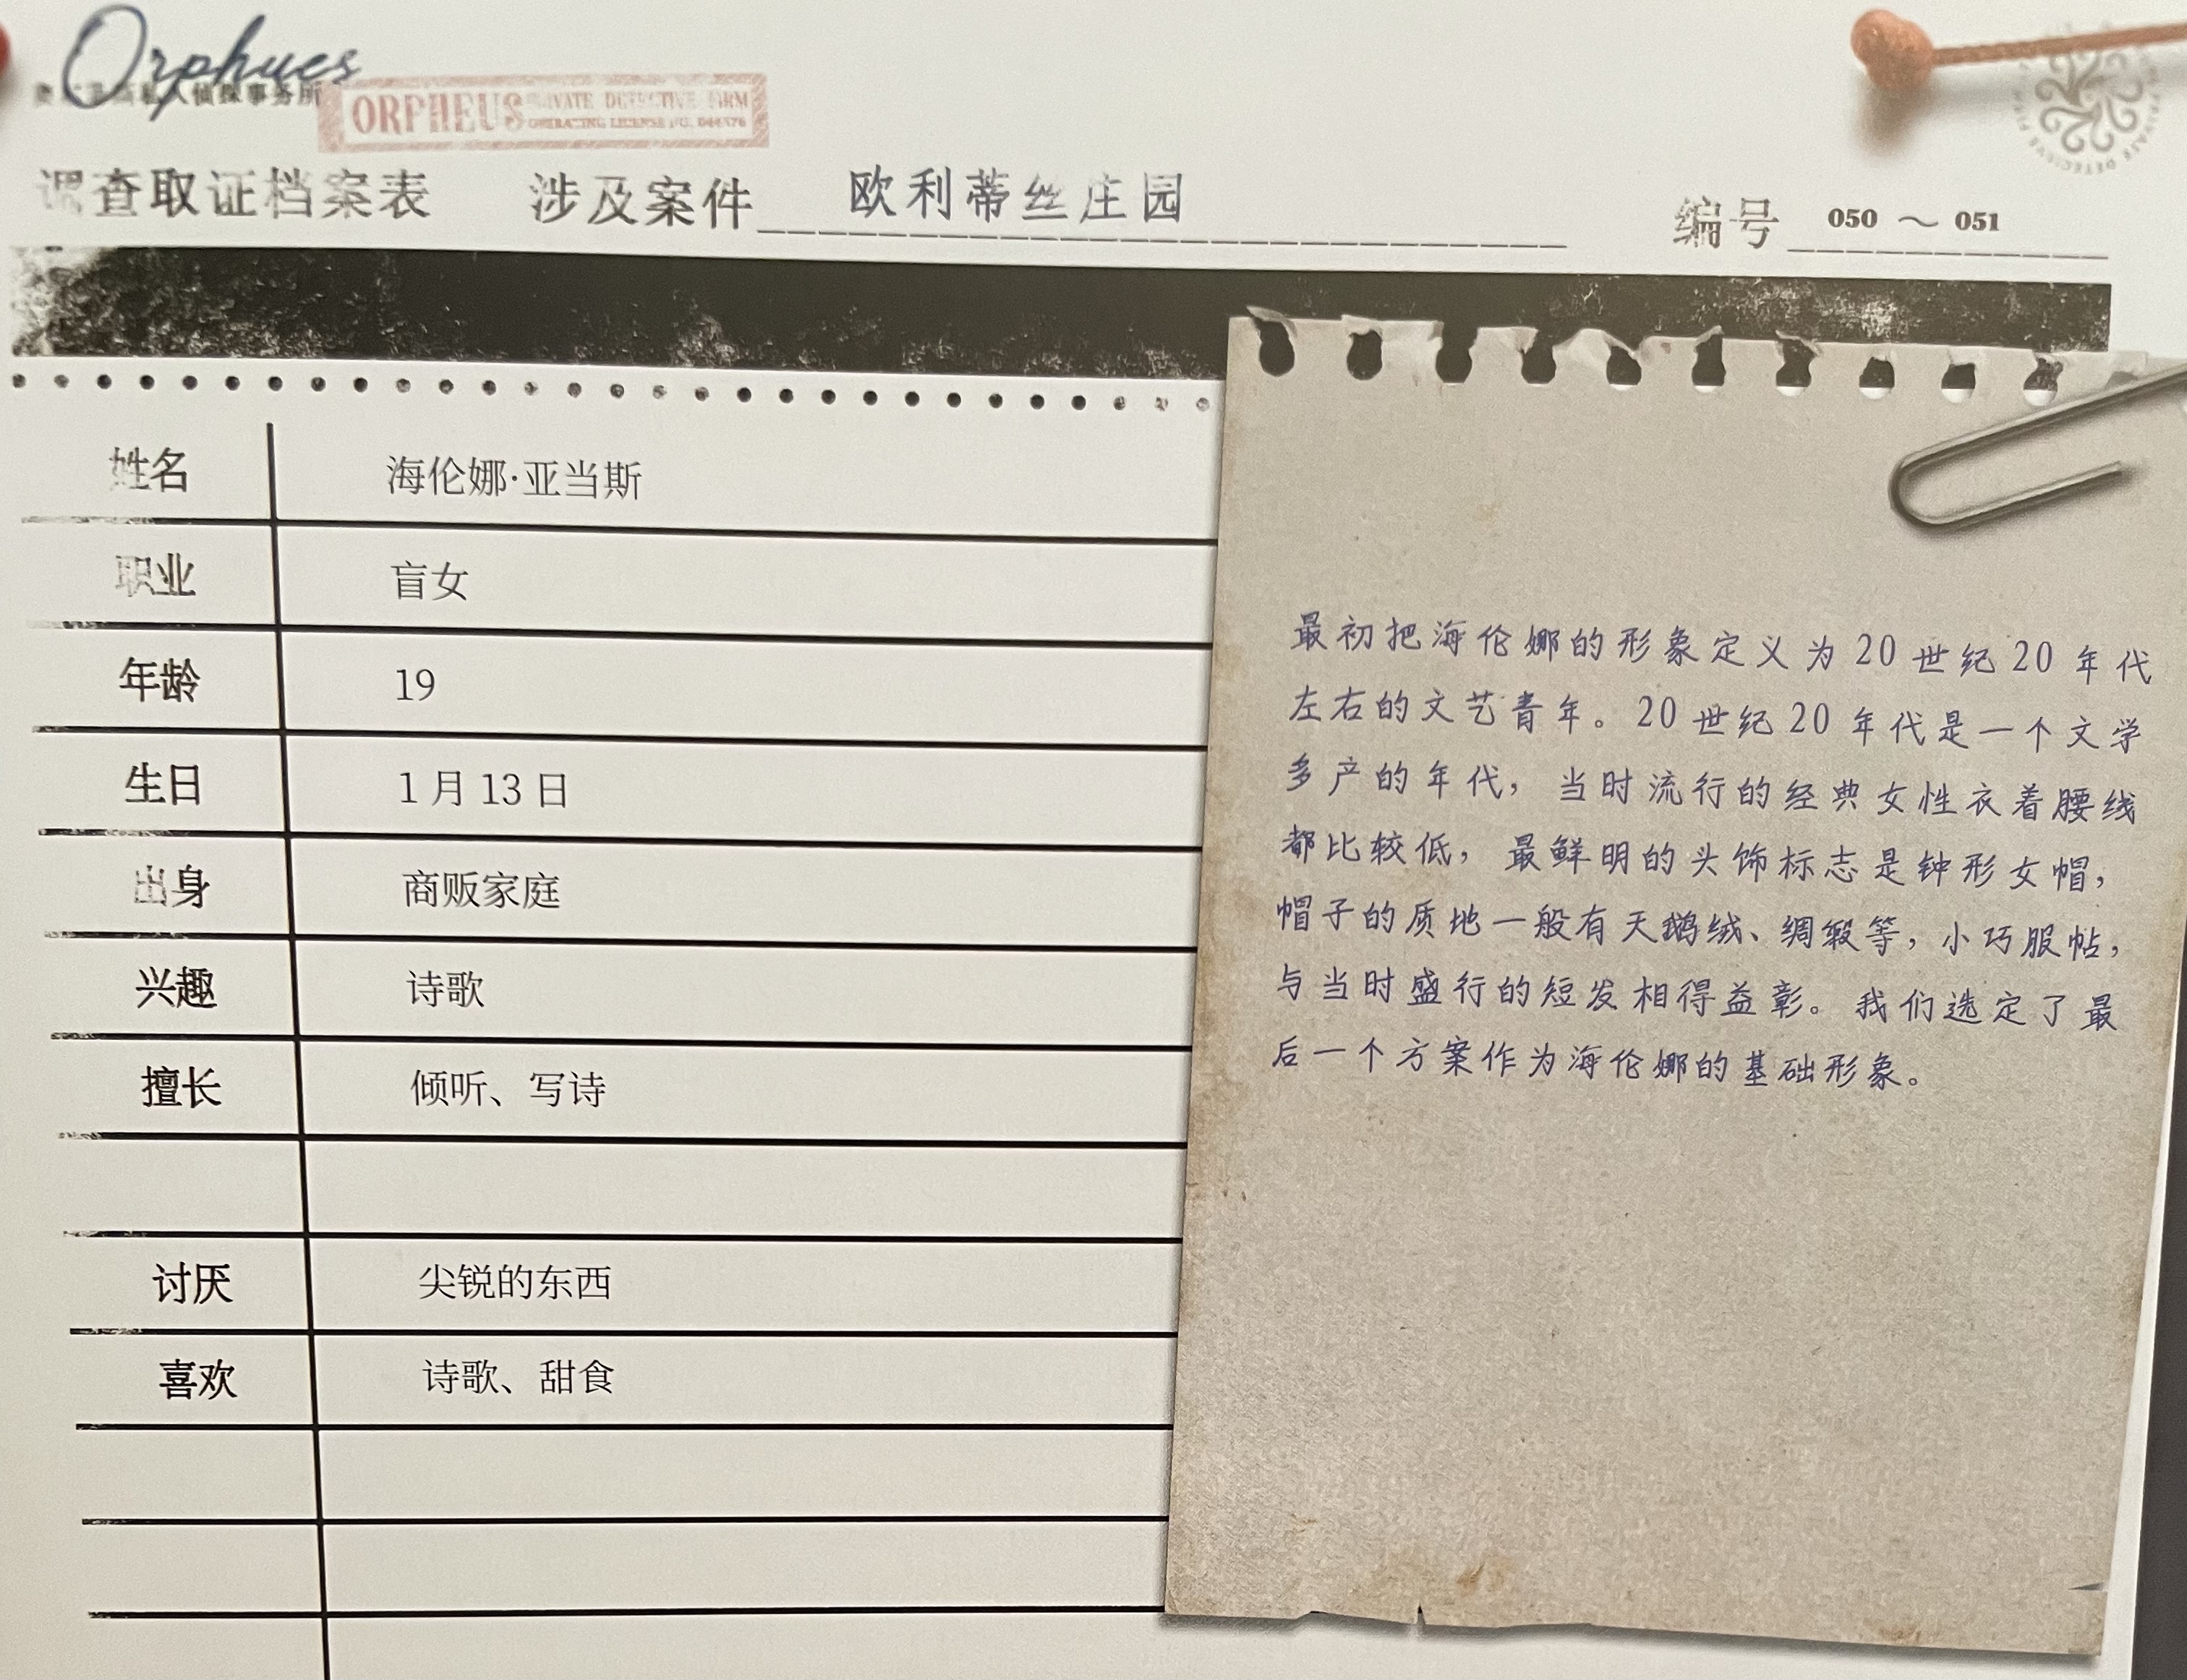 Orphues
私人侦探事务所
ORPHEUS PRIVATE DETECTIVE FIRM
OPERATING LICENSE NO.
调查取证档案表 涉及案件 欧利蒂丝庄园 编号 050 ～ 051
姓名 海伦娜·亚当斯
职业 盲女
年龄 19
生日 1 月 13 日
出身 商贩家庭
兴趣 诗歌
擅长 倾听、写诗
讨厌 尖锐的东西
喜欢 诗歌、甜食
最初把海伦娜的形象定义为 20 世纪 20 年代
左右的文艺青年。20 世纪 20 年代是一个文学
多产的年代，当时流行的经典女性衣着腰线
都比较低，最鲜明的头饰标志是钟形女帽，
帽子的质地一般有天鹅绒、绸缎等，小巧服帖，
与当时盛行的短发相得益彰。我们选定了最
后一个方案作为海伦娜的基础形象。